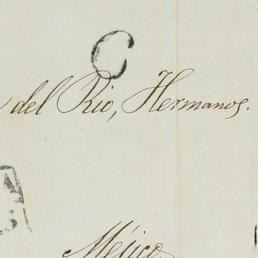 C
del Rio, Hermanos.
Méjico